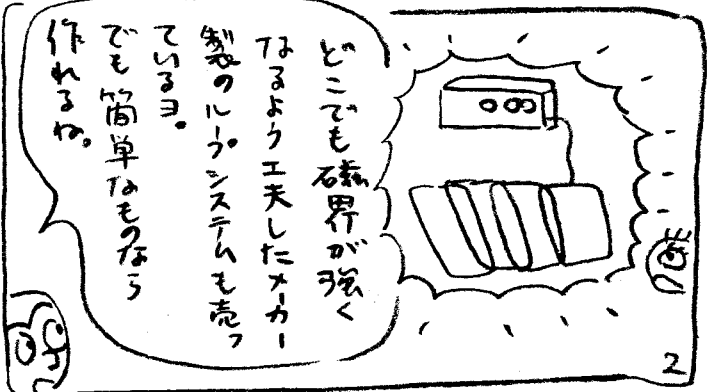 どこでも磁界が強く
なるよう工夫したメーカー
製のループシステムも売っ
ているヨ。
でも簡単なものなら
作れるね。
2